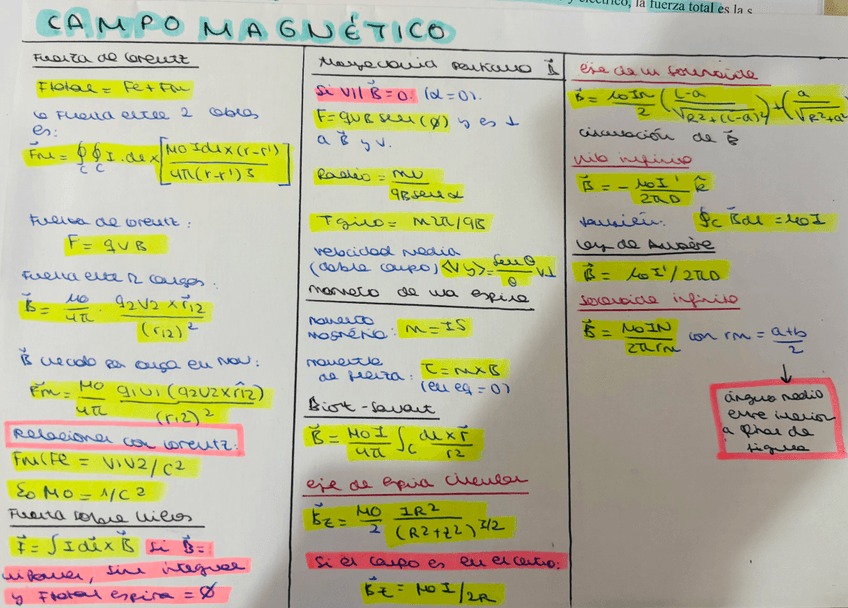 y eléctrico, la fuerza total es la s
CAMPO MAGNÉTICO
Fuerza de Lorentz
Ftotal = Fe + Fm
la Fuerza entre 2 cables
es:
F⃗m = ∮C ∮C I·dl × [μ0 I dl × (r-r') / 4π(r-r')3]
Fuerza de Lorentz:
F = qvB
Fuerza entre 2 cargas:
B⃗ = μ0/4π · q2v2 × r̂12 / (r12)²
B⃗ creado por carga en mov:
F⃗m = μ0/4π q1v1 (q2v2 × r̂12) / (r12)²
Relaciones con Lorentz:
Fm/Fe = v1v2/c²
ε0 μ0 = 1/c²
Fuerza sobre hilos
F⃗ = ∫ I dl⃗ × B⃗ si B⃗ =
uniforme, sin integral
y Ftotal espira = Ø
Si v // B⃗ = 0. (α = 0).
F = qvB sen(Ø) y es ⊥
a B⃗ y v.
Radio = mv / qB senα
T giro = m2π/qB
velocidad media
(doble campo) <vy> = senθ/θ v⊥
momento de una espira
momento
magnético: m = IS
momento
de fuerza: τ = m×B
(en eq = 0)
Biot-Savart
B⃗ = μ0 I/4π ∫C dl × r̂ / r²
eje de espira circular
B⃗z = μ0/2 IR² / (R²+z²)3/2
Si el campo es en el centro:
B⃗z = μ0 I/2R
eje de un solenoide
B⃗ = μ0 I n/2 (L-a/√R²+(L-a)²) + (a/√R²+a²
circulación de B⃗
hilo infinito
B⃗ = - μ0 I'/2πD k̂
también: ∮C B⃗dl = μ0 I
Ley de Ampère
B⃗ = μ0 I'/2πD
solenoide infinito
B⃗ = μ0 IN/2π rm con rm = a+b/2